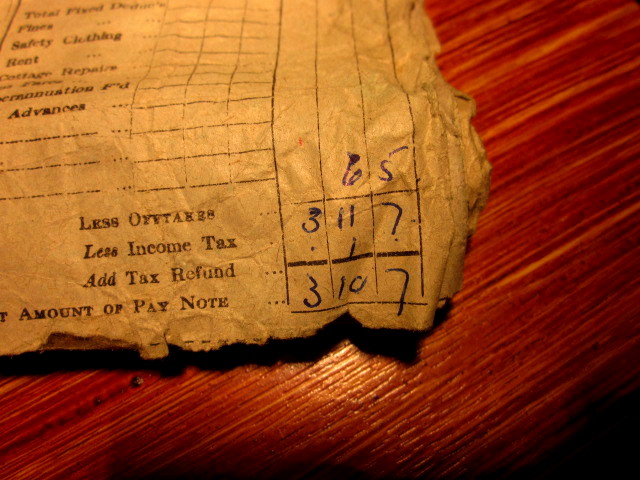 Total Fixed Deduc's
Fines ...
Safety Clothing ...
Rent ...
Cottage Repairs
perannuation F'd
Advances ...
6 5
LESS OFFTAKES ... 3 11 7
Less Income Tax . 1 .
Add Tax Refund ...
T AMOUNT OF PAY NOTE 3 10 7